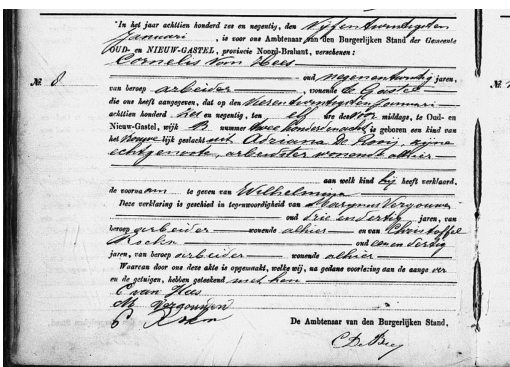 In het jaar achttien honderd zes en negentig, den Vijfentwintigsten
Januari, is voor ons Ambtenaar van den Burgerlijken Stand der Gemeente
OUD- en NIEUW-GASTEL, provincie Noord-Brabant, verschenen:
Cornelis Van Hees
No. 8. oud negenentwintig jaren,
van beroep arbeider, wonende te Gastel
die ons heeft aangegeven, dat op den Vierentwintigsten Januari
achttien honderd zes en negentig, ten elf ure des voor middags, te Oud- en
Nieuw-Gastel, wijk B nummer twee honderd is geboren een kind van
het Vrouwelijk geslacht uit Adriana De Rooij, zijne
echtgenoote, arbeidster wonende alhier
aan welk kind hij heeft verklaard,
de voornaam te geven van Wilhelmina
Deze verklaring is geschied in tegenwoordigheid van Marijnus Vergouwen
oud drie en dertig jaren, van
beroep arbeider wonende alhier en van Christoffel
oud een en dertig
jaren, van beroep arbeider wonende alhier
Waarvan door ons deze akte is opgemaakt, welke wij, na gedane voorlezing aan de aangever
en de getuigen, hebben geteekend met hen
C van Hees
M Vergouwen
De Ambtenaar van den Burgerlijken Stand,